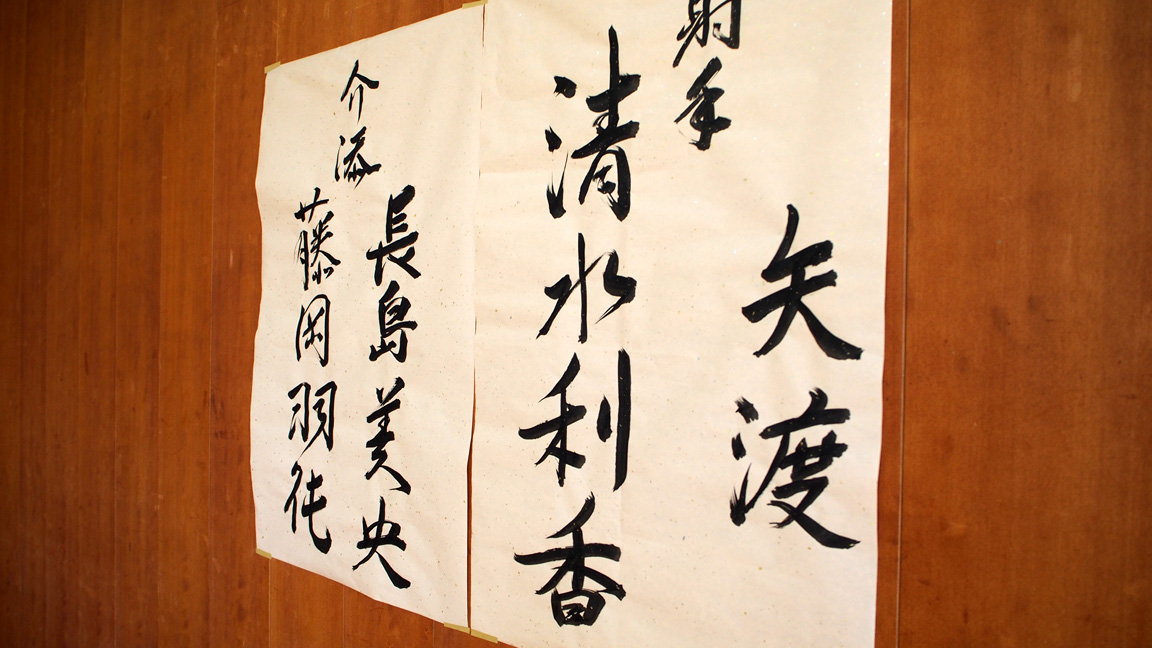 矢渡
射手
清水利香
介添
長島美央
藤岡羽